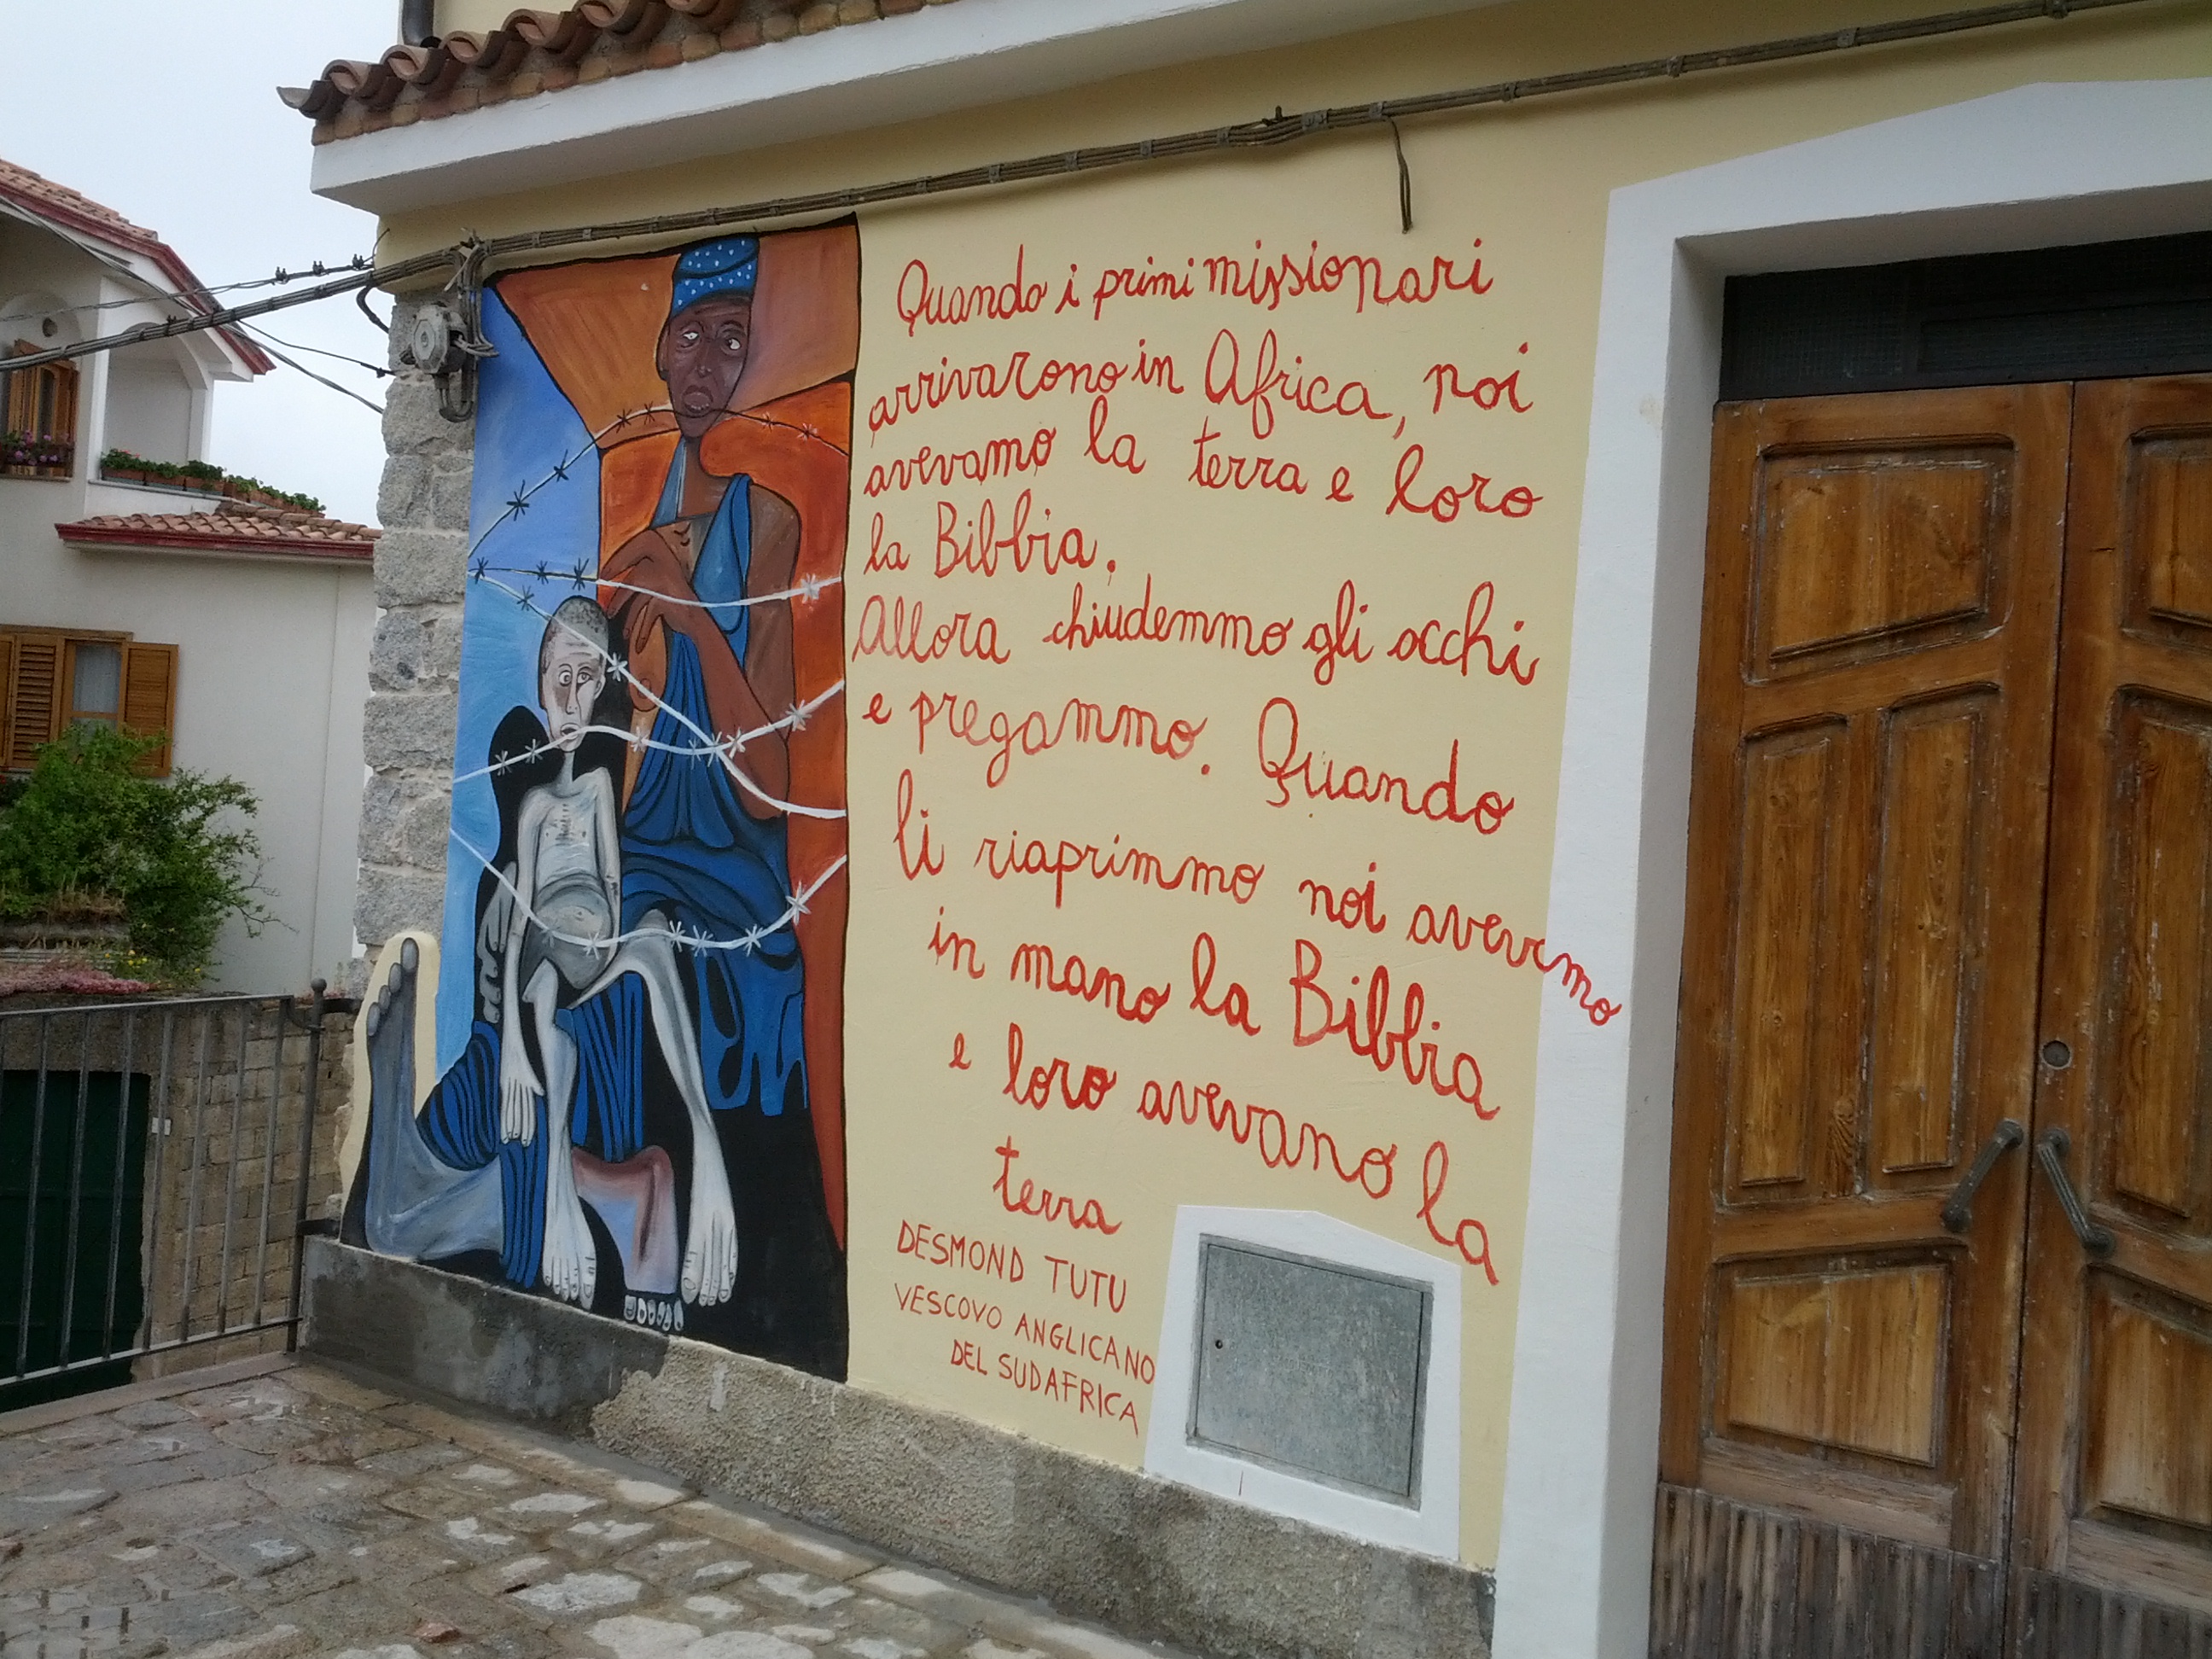 Quando i primi missionari
arrivarono in Africa, noi
avevamo la terra e loro
la Bibbia.
Allora chiudemmo gli occhi
e pregammo. Quando
li riaprimmo noi avevamo
in mano la Bibbia
e loro avevano la
terra
DESMOND TUTU
VESCOVO ANGLICANO
DEL SUDAFRICA